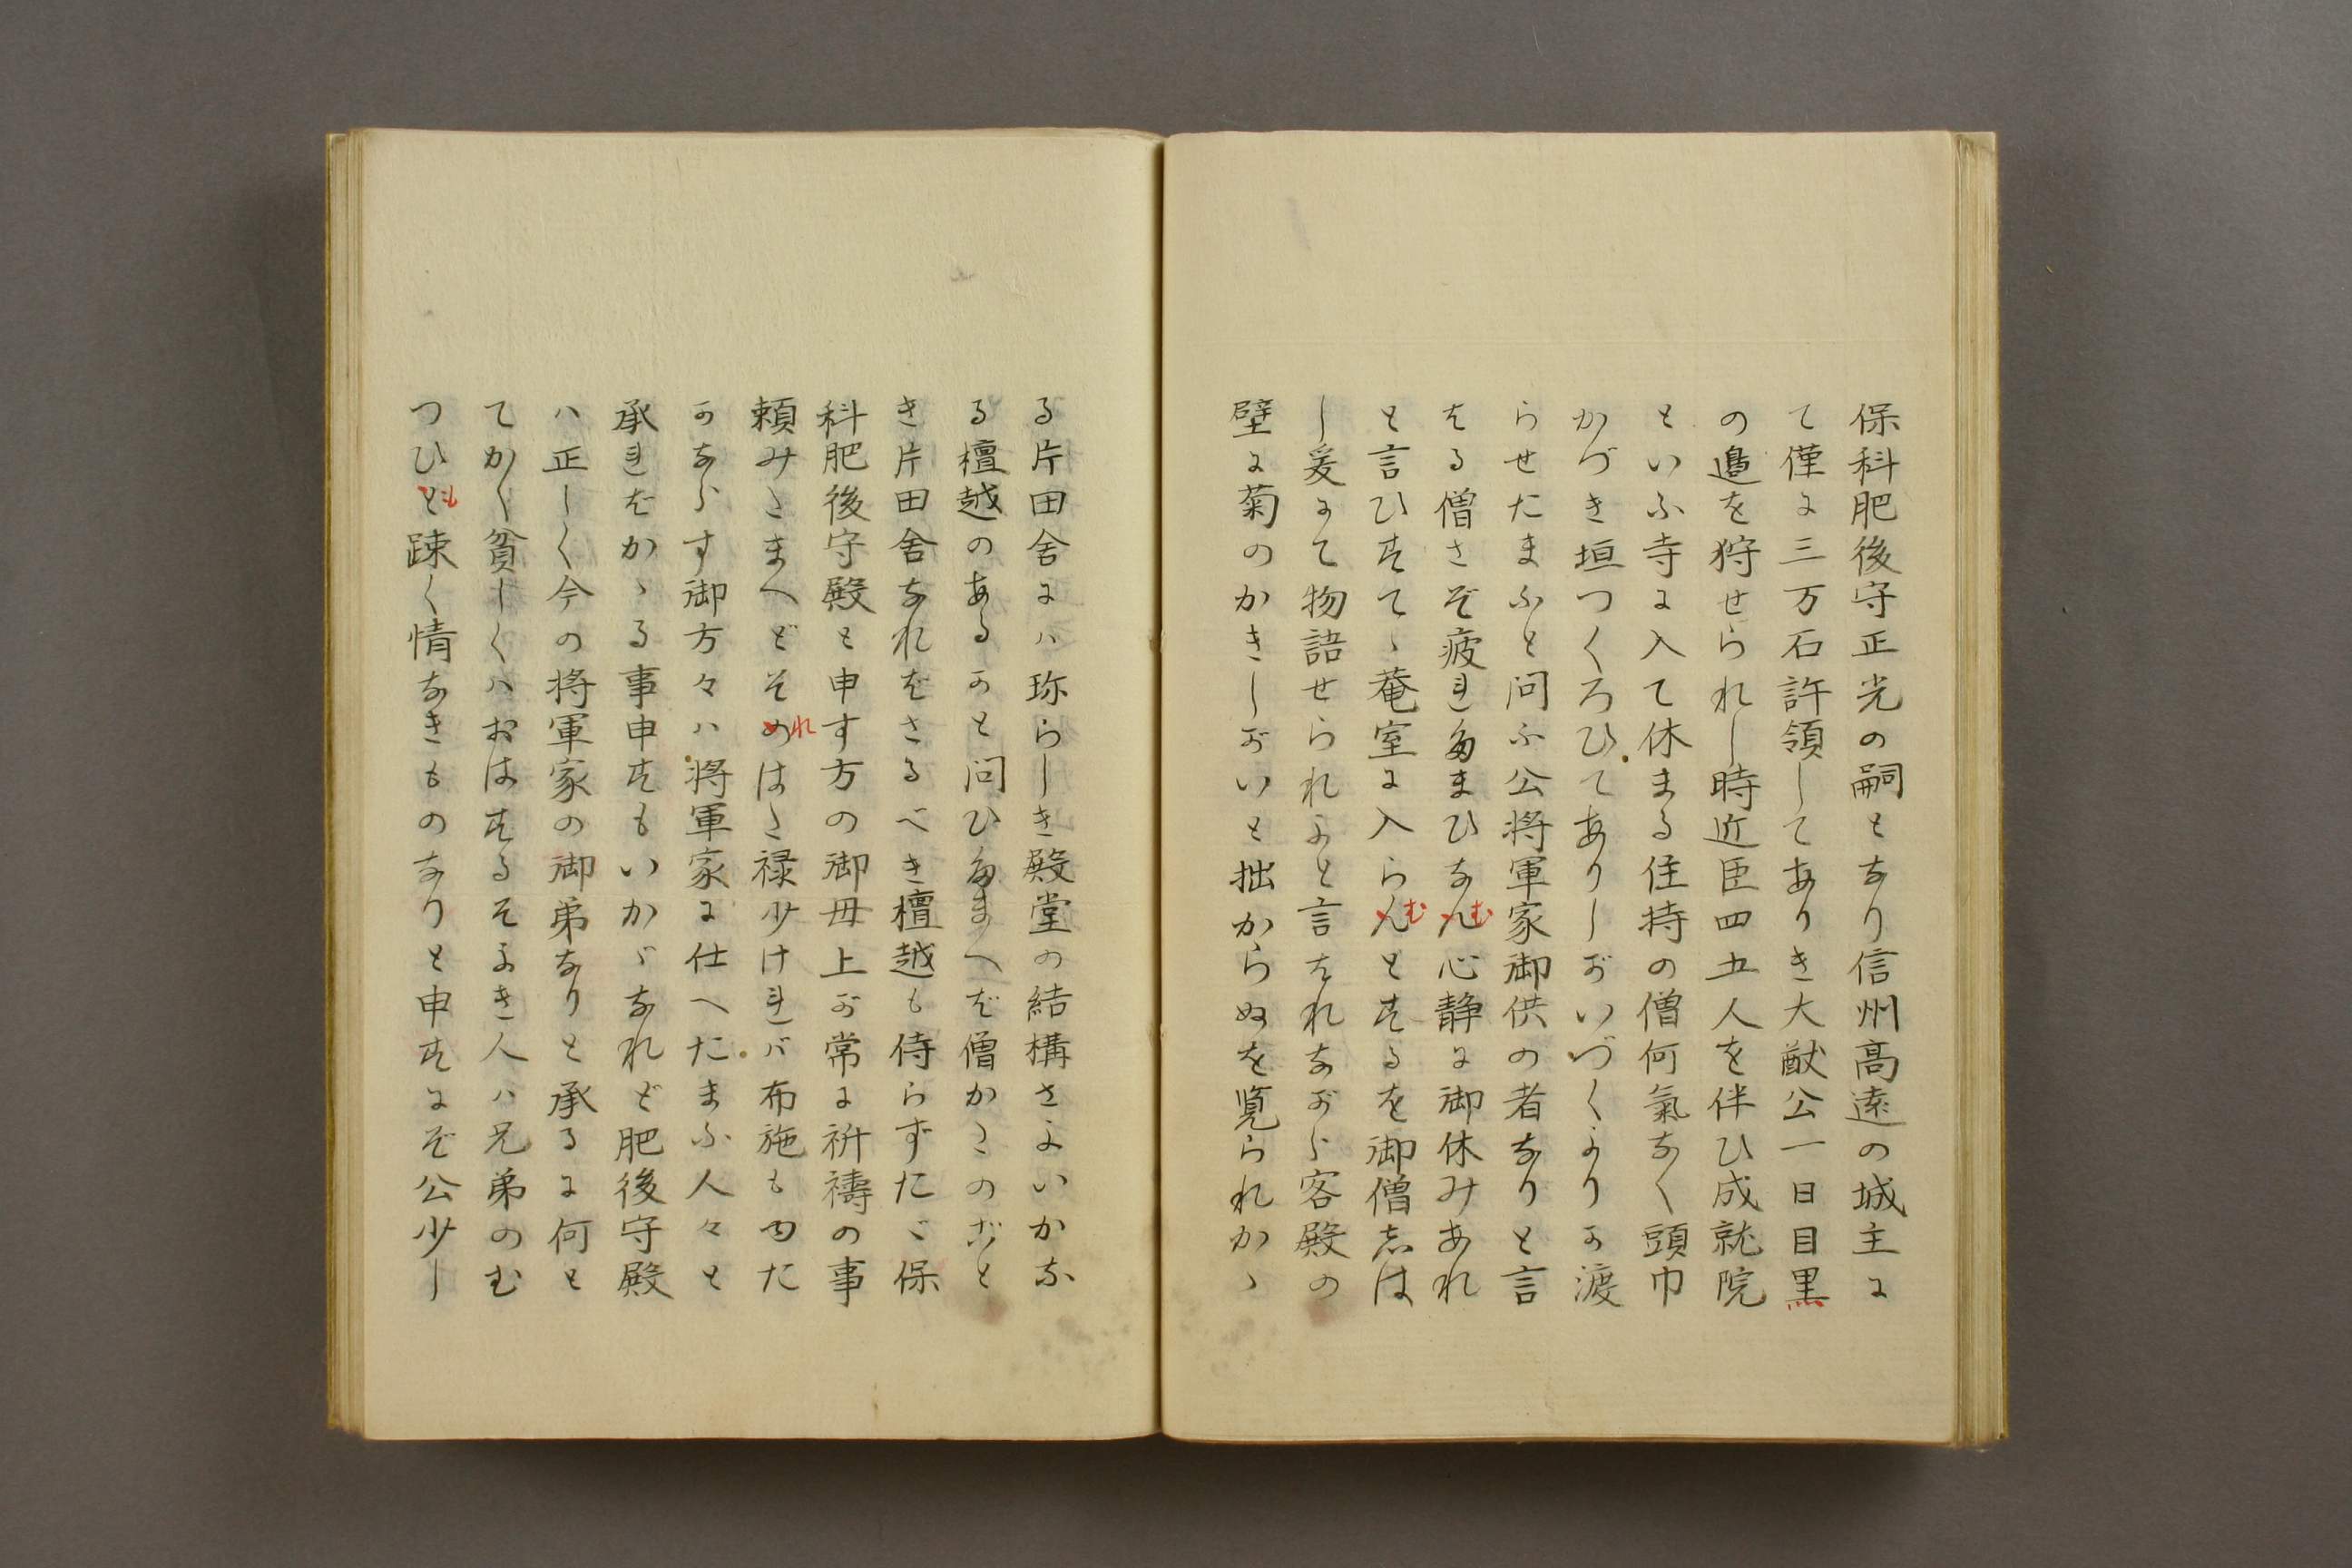 保科肥後守正光の嗣となり信州高遠の城主に
て僅に三万石許領してありき大猷公一日目黒
の邉を狩せられし時近臣四五人を伴ひ成就院
といふ寺に入て休まる住持の僧何氣なく頭巾
かづき垣つくろひてありしがいづくよりか渡
らせたまふと問ふ公将軍家御供の者なりと言
はる僧さぞ疲れ給まひなん心静に御休みあれ
と言ひすてゝ菴室に入らんとするを御僧志は
し爰にて物語せられよと言はれながら客殿の
壁に菊のかきしがいと拙からぬを覧られかゝ
る片田舎にハ珎らしき殿堂の結構さよいかな
る檀越のあるかと問ひ給まへば僧かゝのごと
き片田舎なれはさるべき檀越も侍らずたゞ保
科肥後守殿と申す方の御母上が常に祈禱の事
頼みたまへどそれはた禄少けれバ布施も由た
かならす御方々ハ将軍家に仕へたまふ人々と
承ればかゝる事申すもいかゞなれど肥後守殿
ハ正しく今の将軍家の御弟なりと承るに何と
てかく貧しくハおはするそよき人ハ兄弟のむ
つひも踈く情なきものなりと申すにぞ公少し